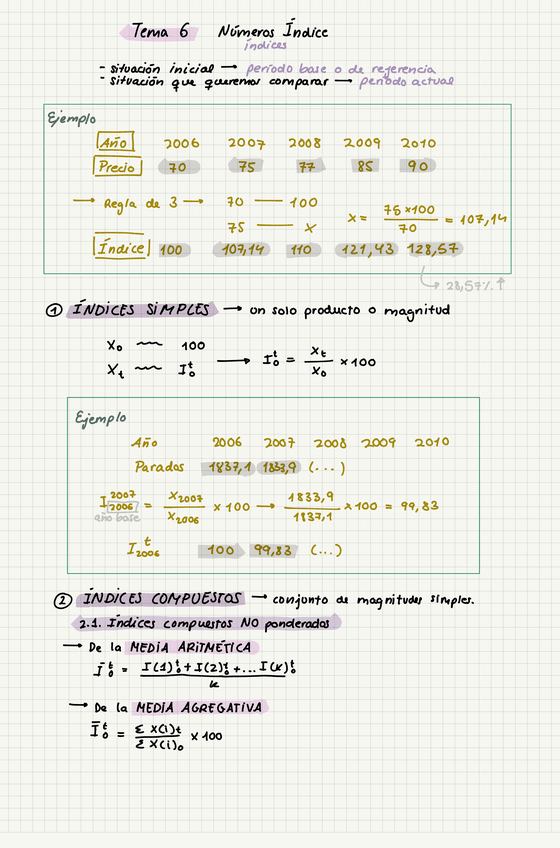 Tema 6 Números Índice
índices
- situación inicial → período base o de referencia
- situación que queremos comparar → período actual
Ejemplo
Año 2006 2007 2008 2009 2010
Precio 70 75 77 85 90
→ Regla de 3 → 70 — 100
75 — x
x = 75 x100 / 70 = 107,14
Índice 100 107,14 110 121,43 128,57
28,57% ↑
① ÍNDICES SIMPLES → un solo producto o magnitud
X₀ ~~~ 100
Xₜ ~~~ I₀ᵗ → I₀ᵗ = Xₜ / X₀ x 100
Ejemplo
Año 2006 2007 2008 2009 2010
Parados 1837,1 1833,9 (...)
I 2007 / 2006 = X₂₀₀₇ / X₂₀₀₆ x 100 → 1833,9 / 1837,1 x 100 = 99,83
año base
I₂₀₀₆ᵗ 100 99,83 (...)
② ÍNDICES COMPUESTOS → conjunto de magnitudes simples.
2.1. Índices compuestos NO ponderados
→ De la MEDIA ARITMÉTICA
Ī₀ᵗ = I(1)₀ᵗ + I(2)₀ᵗ + ... I(k)₀ᵗ / k
→ De la MEDIA AGREGATIVA
Ī₀ᵗ = Σ X(i)ₜ / Σ X(i)₀ x 100